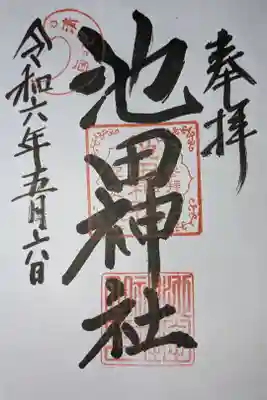 奉拝
池田神社
令和六年五月六日